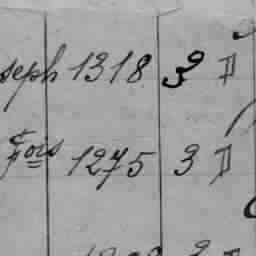 seph 1318 3 D
Fois 1275 3 D